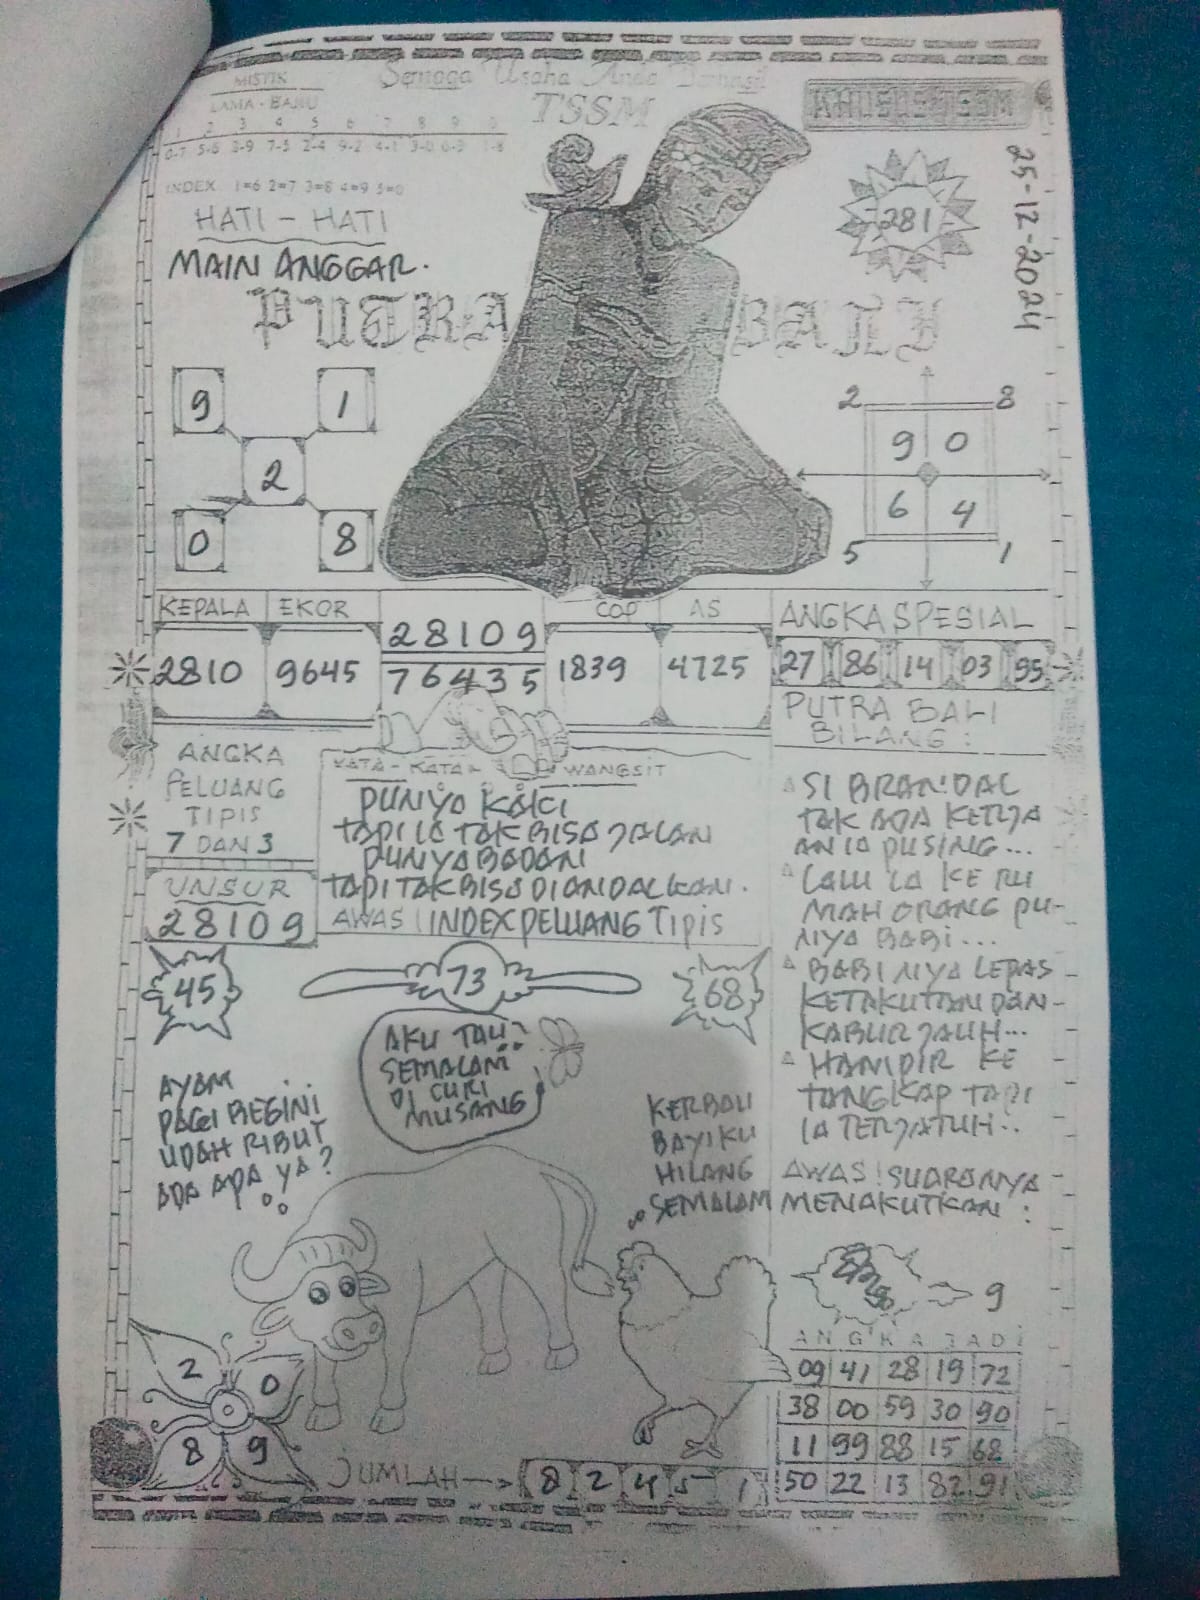 MISTIK
LAMA - BARU
1 2 3 4 5 6 7 8 9 0
0-7 5-6 8-9 7-5 2-4 9-2 4-1 3-0 6-3 1-8
INDEX 1=6 2=7 3=8 4=9 5=0
Semoga Usaha Anda Berhasil
TSSM
25-12-2024
281
HATI - HATI
MAIN ANGGAR.
PUTRA BALI
9 1
2
0 8
2 8
9 0
6 4
5 1
KEPALA EKOR COP AS ANGKA SPESIAL
2810 9645 28109 1839 4725 27 86 14 03 95
76435
PUTRA BALI
BILANG :
ANGKA
PELUANG
TIPIS
7 DAN 3
UNSUR
28109
KATA - KATA WANGSIT
PUNYA KAKI
TAPI IA TAK BISA JALAN
PUNYA BADAN
TAPI TAK BISA DI ANDALKAN.
AWAS ! INDEX PELUANG TIPIS
SI BRANDAL
TAK ADA KERJA
AN IA PUSING...
LALU IA KE RU
MAH ORANG PU-
NYA BABI...
BABI NYA LEPAS
KETAKUTAN DAN-
KABUR JAUH...
HAMPIR KE
TANGKAP TAPI
IA TERJATUH..
AWAS! SUARANYA
MENAKUTKAN :
45 73 68
AKU TAU?
SEMALAM
DI CURI
MUSANG
AYAM
PAGI BEGINI
UDAH RIBUT
ADA APA YA?
KERBAU
BAYIKU
HILANG
SEMALAM
9
ANGKA JADI
09 41 28 19 72
38 00 59 30 90
11 99 88 15 68
50 22 13 82 91
2 0
8 9
JUMLAH 8 2 4 5 1